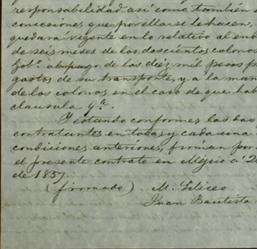 responsabilidad así como tambien
concesiones que por ellas se le hacen,
quedará vigente en lo relativo al
de seis meses de los doscientos colonos
Gobo. al pago de los diez mil pesos
gastos de su transporte, y a la
de los colonos en el caso de que
clausula 9a.
Y estando conformes las
contratantes en todas y cada una
condiciones anteriores, firman por
el presente contrato en Méjico á
de 1857.
(firmado) M. Siliceo
Juan Bautista